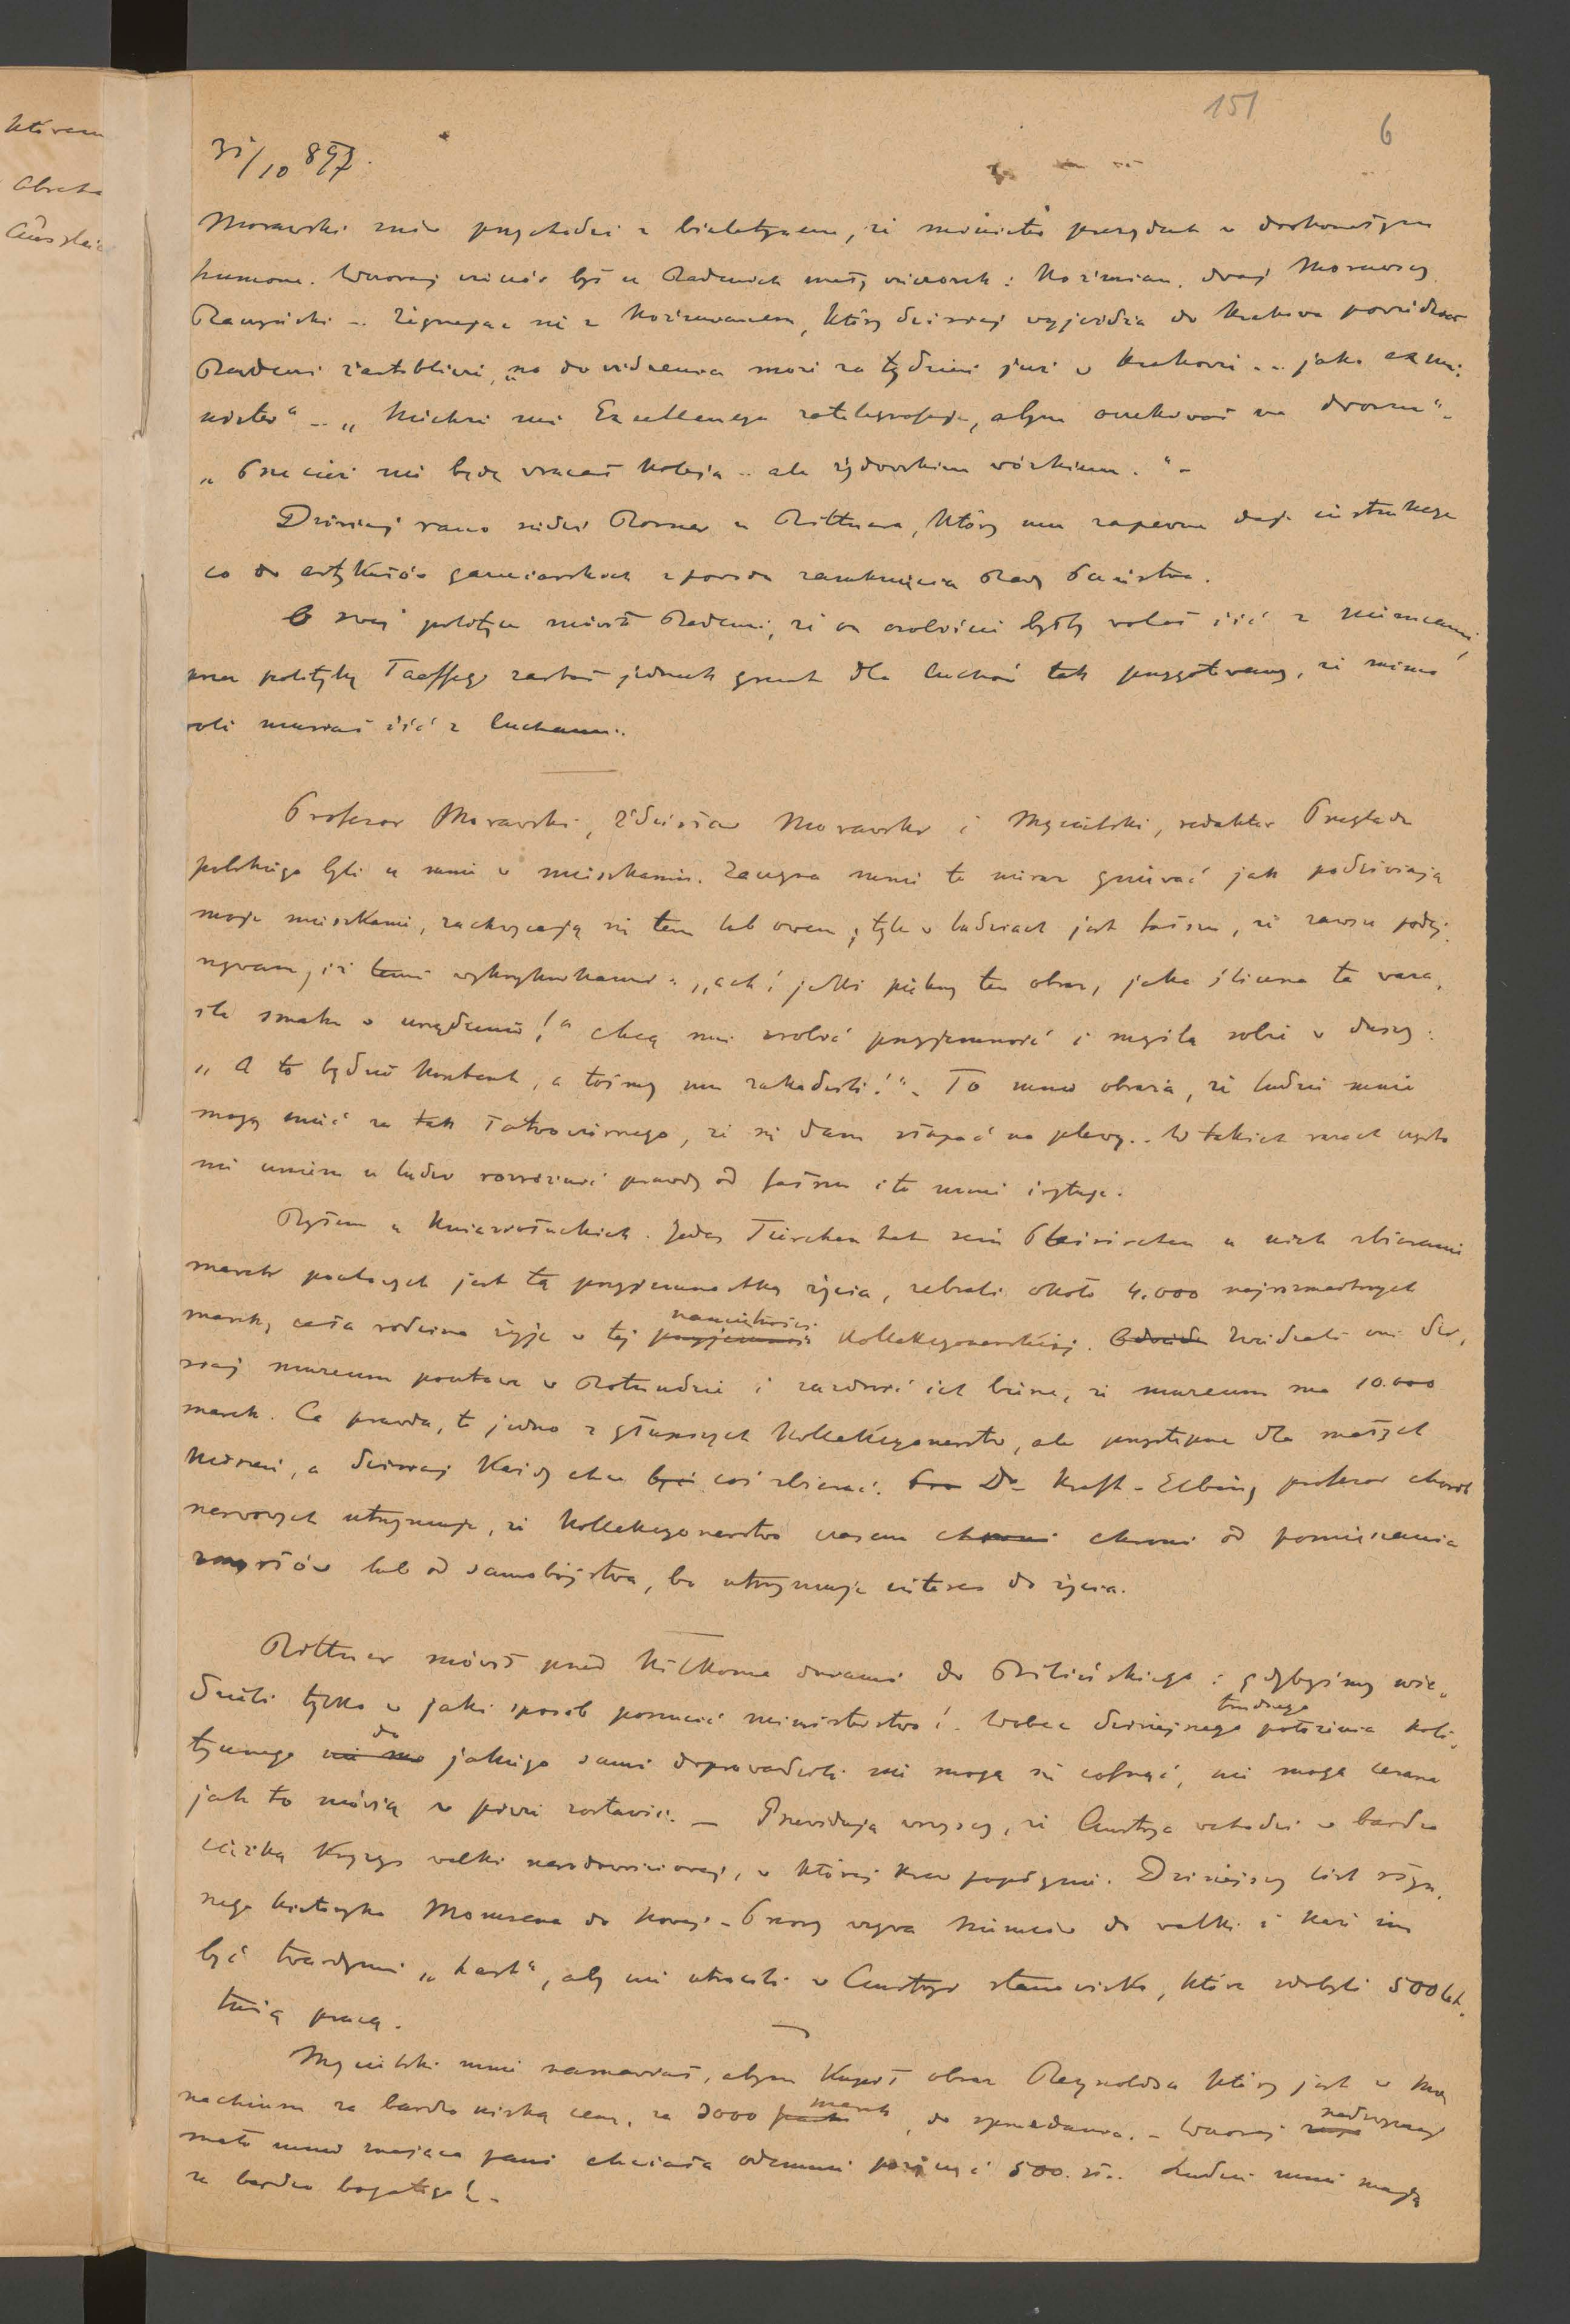 151
6
31/10 897.
Morawski znów przychodzi z biuletynem, że minister prezydent w doskonałym
humorze. Wczoraj wieczór był u Badenich mały wieczorek: Koźmian, dwaj Morawscy
Raczyński -. Żegnając się z Koźmianem, który dzisiaj wyjeżdża do Krakowa powiedział
Badeni żartobliwie, „no do widzenia może za tydzień już w Krakowie... jako exmi-
nister" -. „Niechże mi Excellencya zatelegrafuje, abym oczekiwał na dworcu"-
„Przecież nie będę wracał koleją.. ale żydowskim wózkiem."-
Dzisiaj rano siedzi Rosner u Rittnera, który mu zapewne daje instrukcye
co do artykułów z powodu zamknięcia Rady Państwa.
O swej polityce mówił Badeni, że on osobiście byłby wolał iść z Niemcami,
przez politykę Taaffego zastał jednak grunt dla Czechów tak przygotowany, że mimo
woli musiał iść z Czechami.
Profesor Morawski, Zdzisław Morawski i Mycielski, redaktor Przeglądu
polskiego byli u mnie w mieszkaniu. Zaczyna mnie to nieraz gniewać jak podziwiają
moje mieszkanie, zachwycają się tem lub owem, tyle w ludziach jest fałszu, że zawsze podej-
rzywam, iż temi wykrzyknikami: „ach! jakże piękny ten obraz, jaka śliczna ta waza,
ile smaku w urządzeniu!" chcą mi zrobić przyjemność i myślą sobie w duszy:
„A to będzie kontent, a tośmy mu zakadzili!"- To mnie obraża, że ludzie mnie
mogą mieć za tak łatwowiernego, że się dam złapać na plewy.. W takich razach często
nie umiem u ludzi rozróżnić prawdy od fałszu i to mnie irytuje.
Byłem u Kniaziołuckich. Jedes Tierchen hat sein Pläsirchen u nich zbieranie
marek pocztowych jest tą przyjemnostką życia, zebrali około 4.000 najrozmaitszych
marek, cała rodzina żyje w tej przyjemności namiętności kollekcyonerskiej. Zwiedzali oni dzi-
siaj muzeum pocztowe w Rotundzie i zazdrość ich bierze, że muzeum ma 10.000
marek. Co prawda, to jedno z głupszych kollekcyonerstw, ale przystępne dla małych
kieszeni, a dzisiaj każdy chce być coś zbierać. Dr Kraft-Ebbing profesor chorób
nerwowych utrzymuje, że kollekcyonerstwo czasem chroni chroni od pomieszania
zmysłów lub od samobójstwa, bo utrzymuje interes do życia.
Rittner mówił przed kilkoma dniami do Bilińskiego: gdybyśmy wie-
dzieli tylko w jaki sposób porzucić ministerstwo!. Wobec dzisiejszego trudnego położenia poli-
tycznego do jakiego sami doprowadzili nie mogą się cofnąć, nie mogą cesarza
jak to mówią w piwie zostawić. - Przewidują wszyscy, że Austrya wchodzi w bardzo
ciężką kryzys walki narodowościowej, w której krew popłynie. Dzisiejszy list słyn-
nego historyka Momsena do Nowej-Presy wzywa Niemców do walki i każe im
być twardymi „hart", aby nie utracili w Austryi stanowiska, które zdobyli 500 let-
nią pracą.
Mycielski mnie namawiał, abym kupił obraz Reynoldsa który jest w Mo-
nachium za bardzo niską cenę, za 3000 marek, do sprzedania. - Wczoraj nadzwyczaj
mało mnie znająca pani chciała odemnie pożyczyć 500. zł.. Ludzie mnie mają
za bardzo bogatego!-